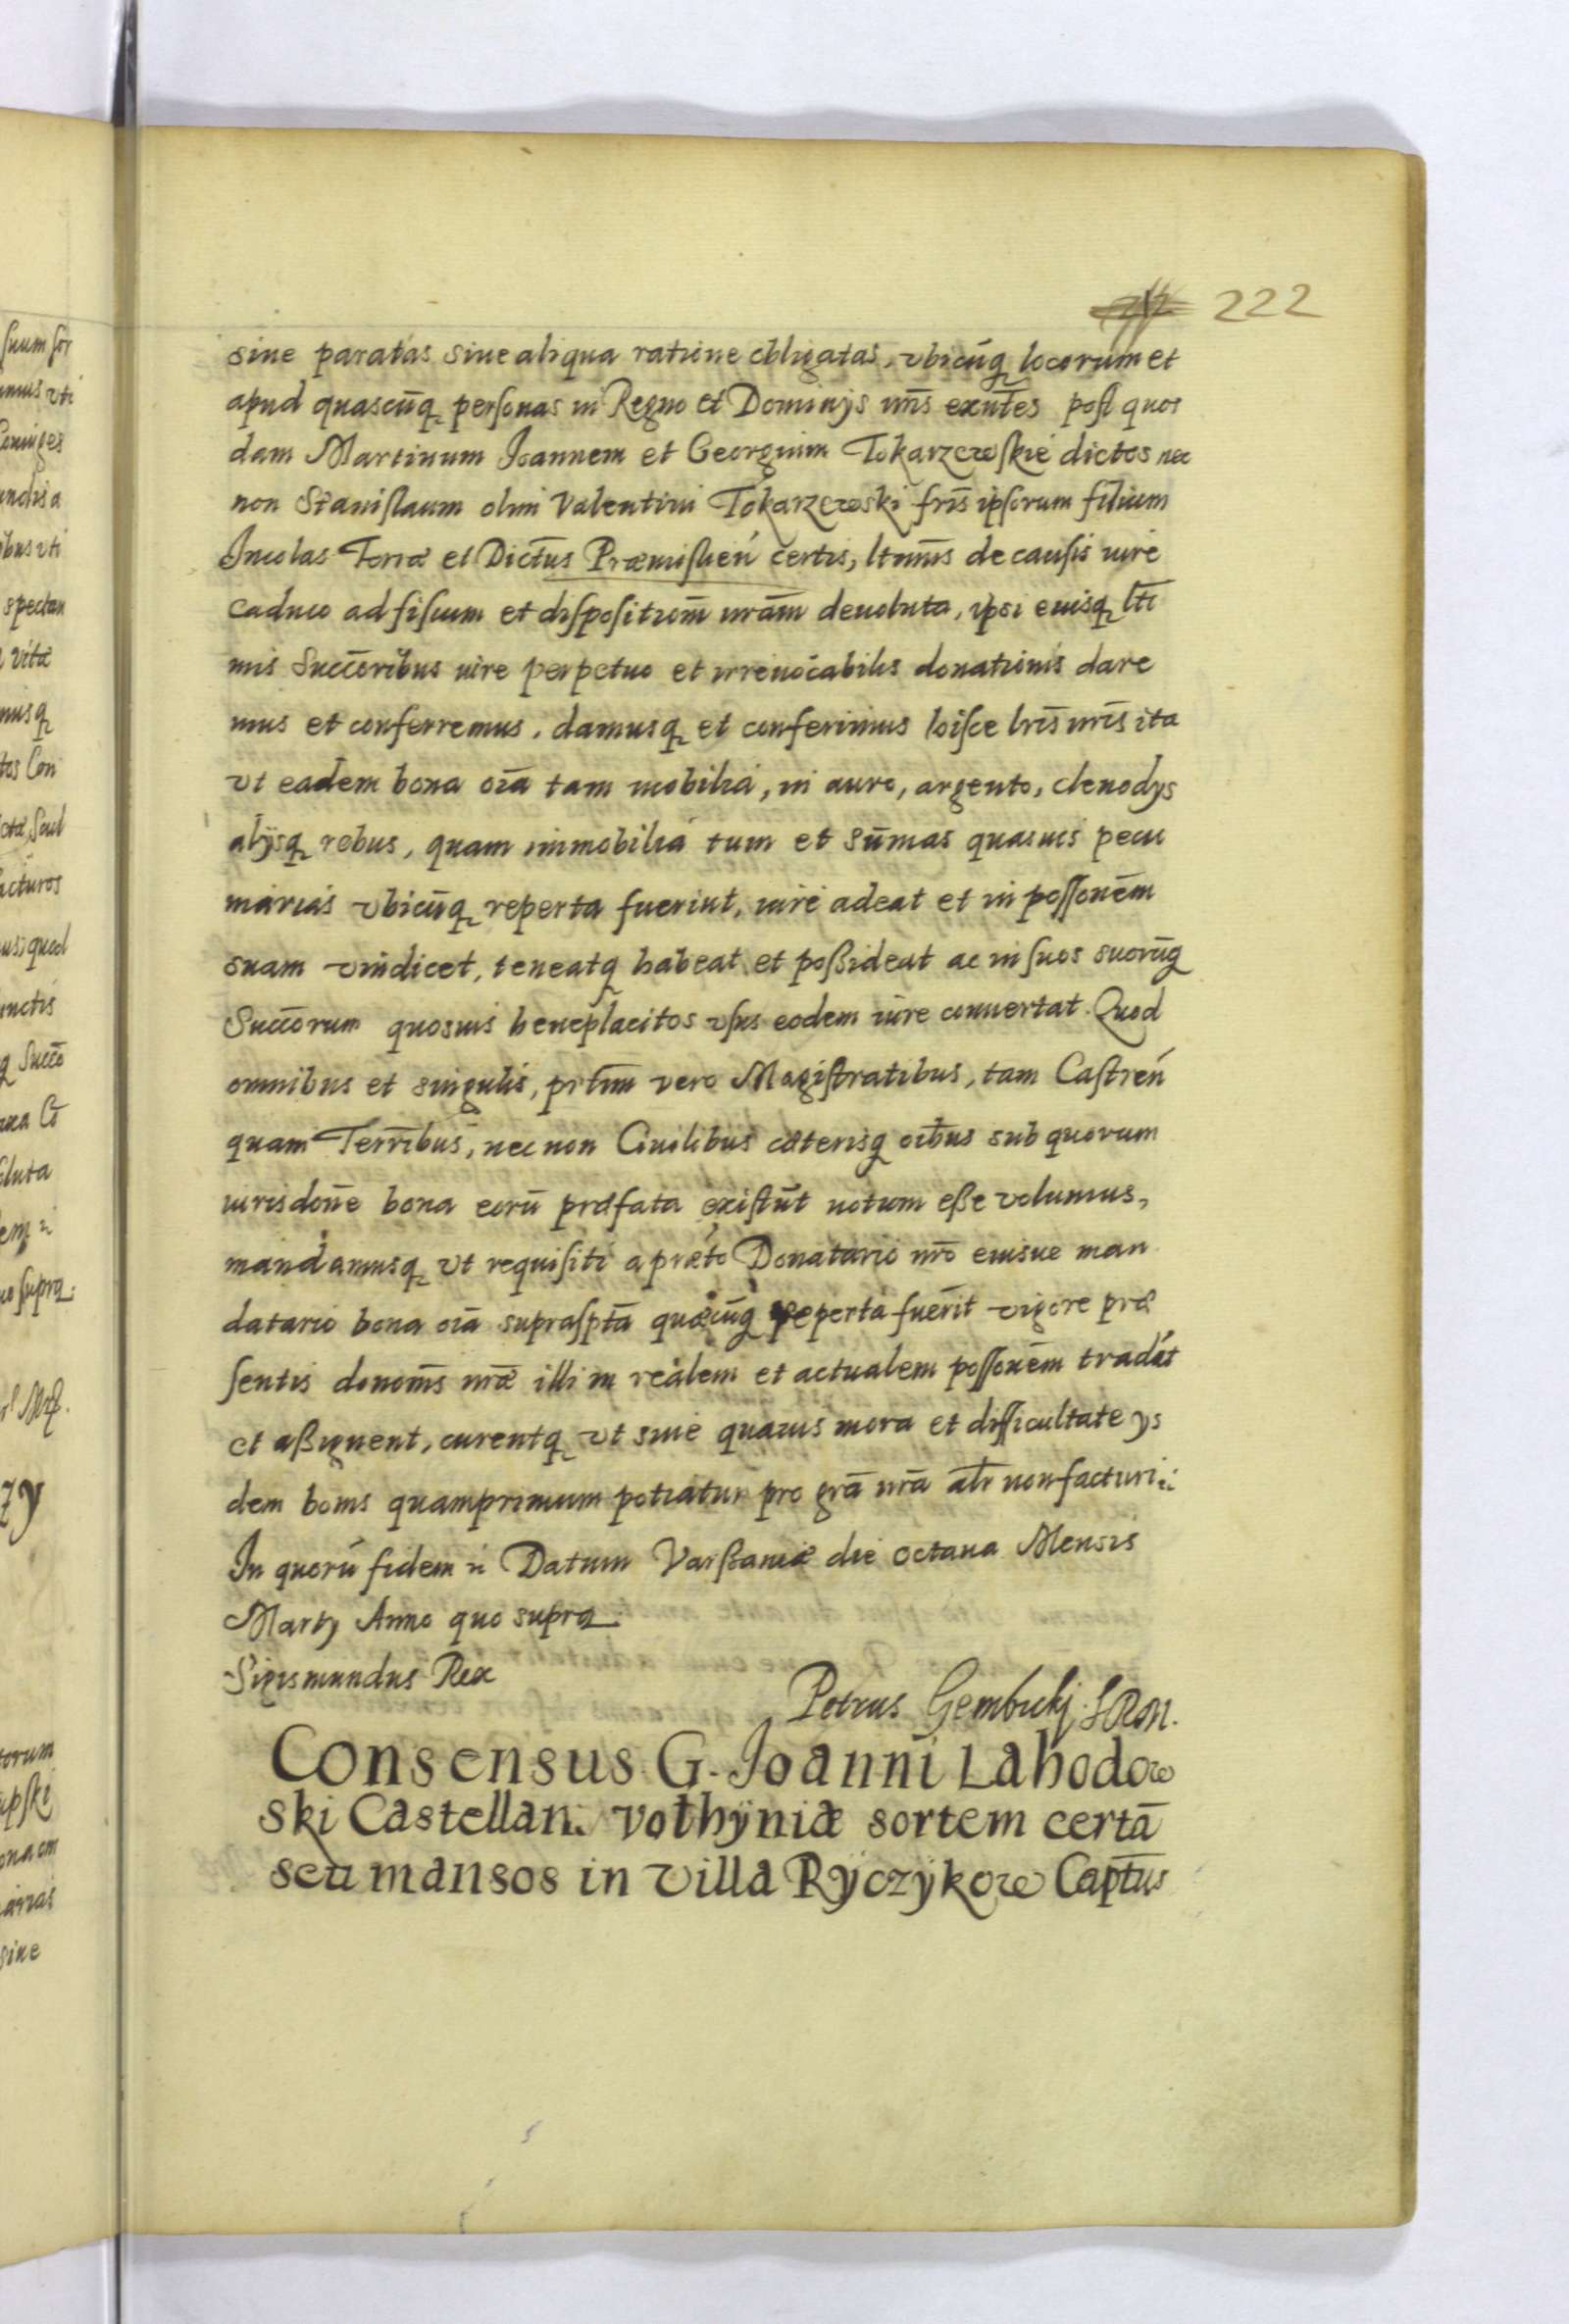 222
siue paratas siue aliqua ratione obligatas, vbicūq locorum et
apud quascūq personas in Regno et Dominijs nr̄is exn̄tes post quos
dam Martinum Ioannem et Georgium Tokarzewskie dictos nec
non Stanislaum olim Valentini Tokarzewski fris̄ ipsorum filium
Incolas Terræ et Dictūs Præmislien̄ certis, ltimis̄ de causis iure
caduco ad fiscum et dispositiom̄ nram̄ deuoluta, ipsi eiusq lt̄i
mis Succōribus iure perpetuo et irreuocabilis donationis dare
mus et conferremus, damusq et conferimus hisce lris̄ nris̄ ita
vt eadem bona oīa tam mobilia, in auro, argento, clenodys
alijsq rebus, quam immobilia tum et sum̄as quasuis pecu
niarias vbicūq reperta fuerint, iure adeat et in possonēm
suam vindicet, teneatq habeat et possideat ac in suos suorūq
Succōrum quosuis beneplacitos vsus eodem iure conuertat. Quod
omnibus et singulis, prtīm vero Magistratibus, tam Castren̄
quam Terrīibus, nec non Ciuilibus cæterisq oībus sub quorum
iurisdonē bona eorū præfata existūt notum esse volumus,
mandamusq vt requisiti a præto Donatario nrō eiusue man
datario bona oīa suprasptā quæcūq reperta fuerīt vigore præ
sentis donomīs nrǣ illi in realem et actualem possonēm tradāt
et assignent, curentq vt sine quauis mora et difficultate ys
dem bonis quamprimum potiatur pro grā nrā alr̄ non facturi.
In quorū fidem &c Datum Varssauiæ die octaua Mensis
Martij Anno quo supra.
Sigismundus Rex
Petrus Gembicki SRM.
Consensus G. Ioanni Lahodow
ski Castellani Volhÿniæ sortem certā
seu mansos in villa Rÿczÿkow Captūs